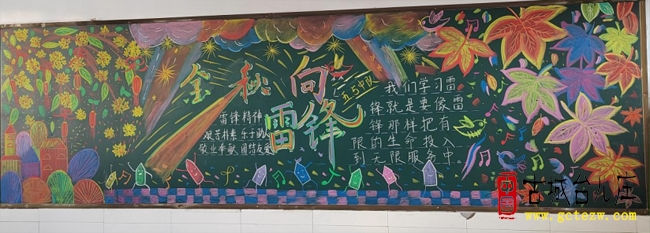 金秋向
雷锋
五5中队
雷锋精神
艰苦朴素 乐于助人
敬业奉献 团结友爱
我们学习雷
锋就是要像雷
锋那样把有
限的生命投入
到无限服务中
中国 古城台儿庄
www.gctezw.com